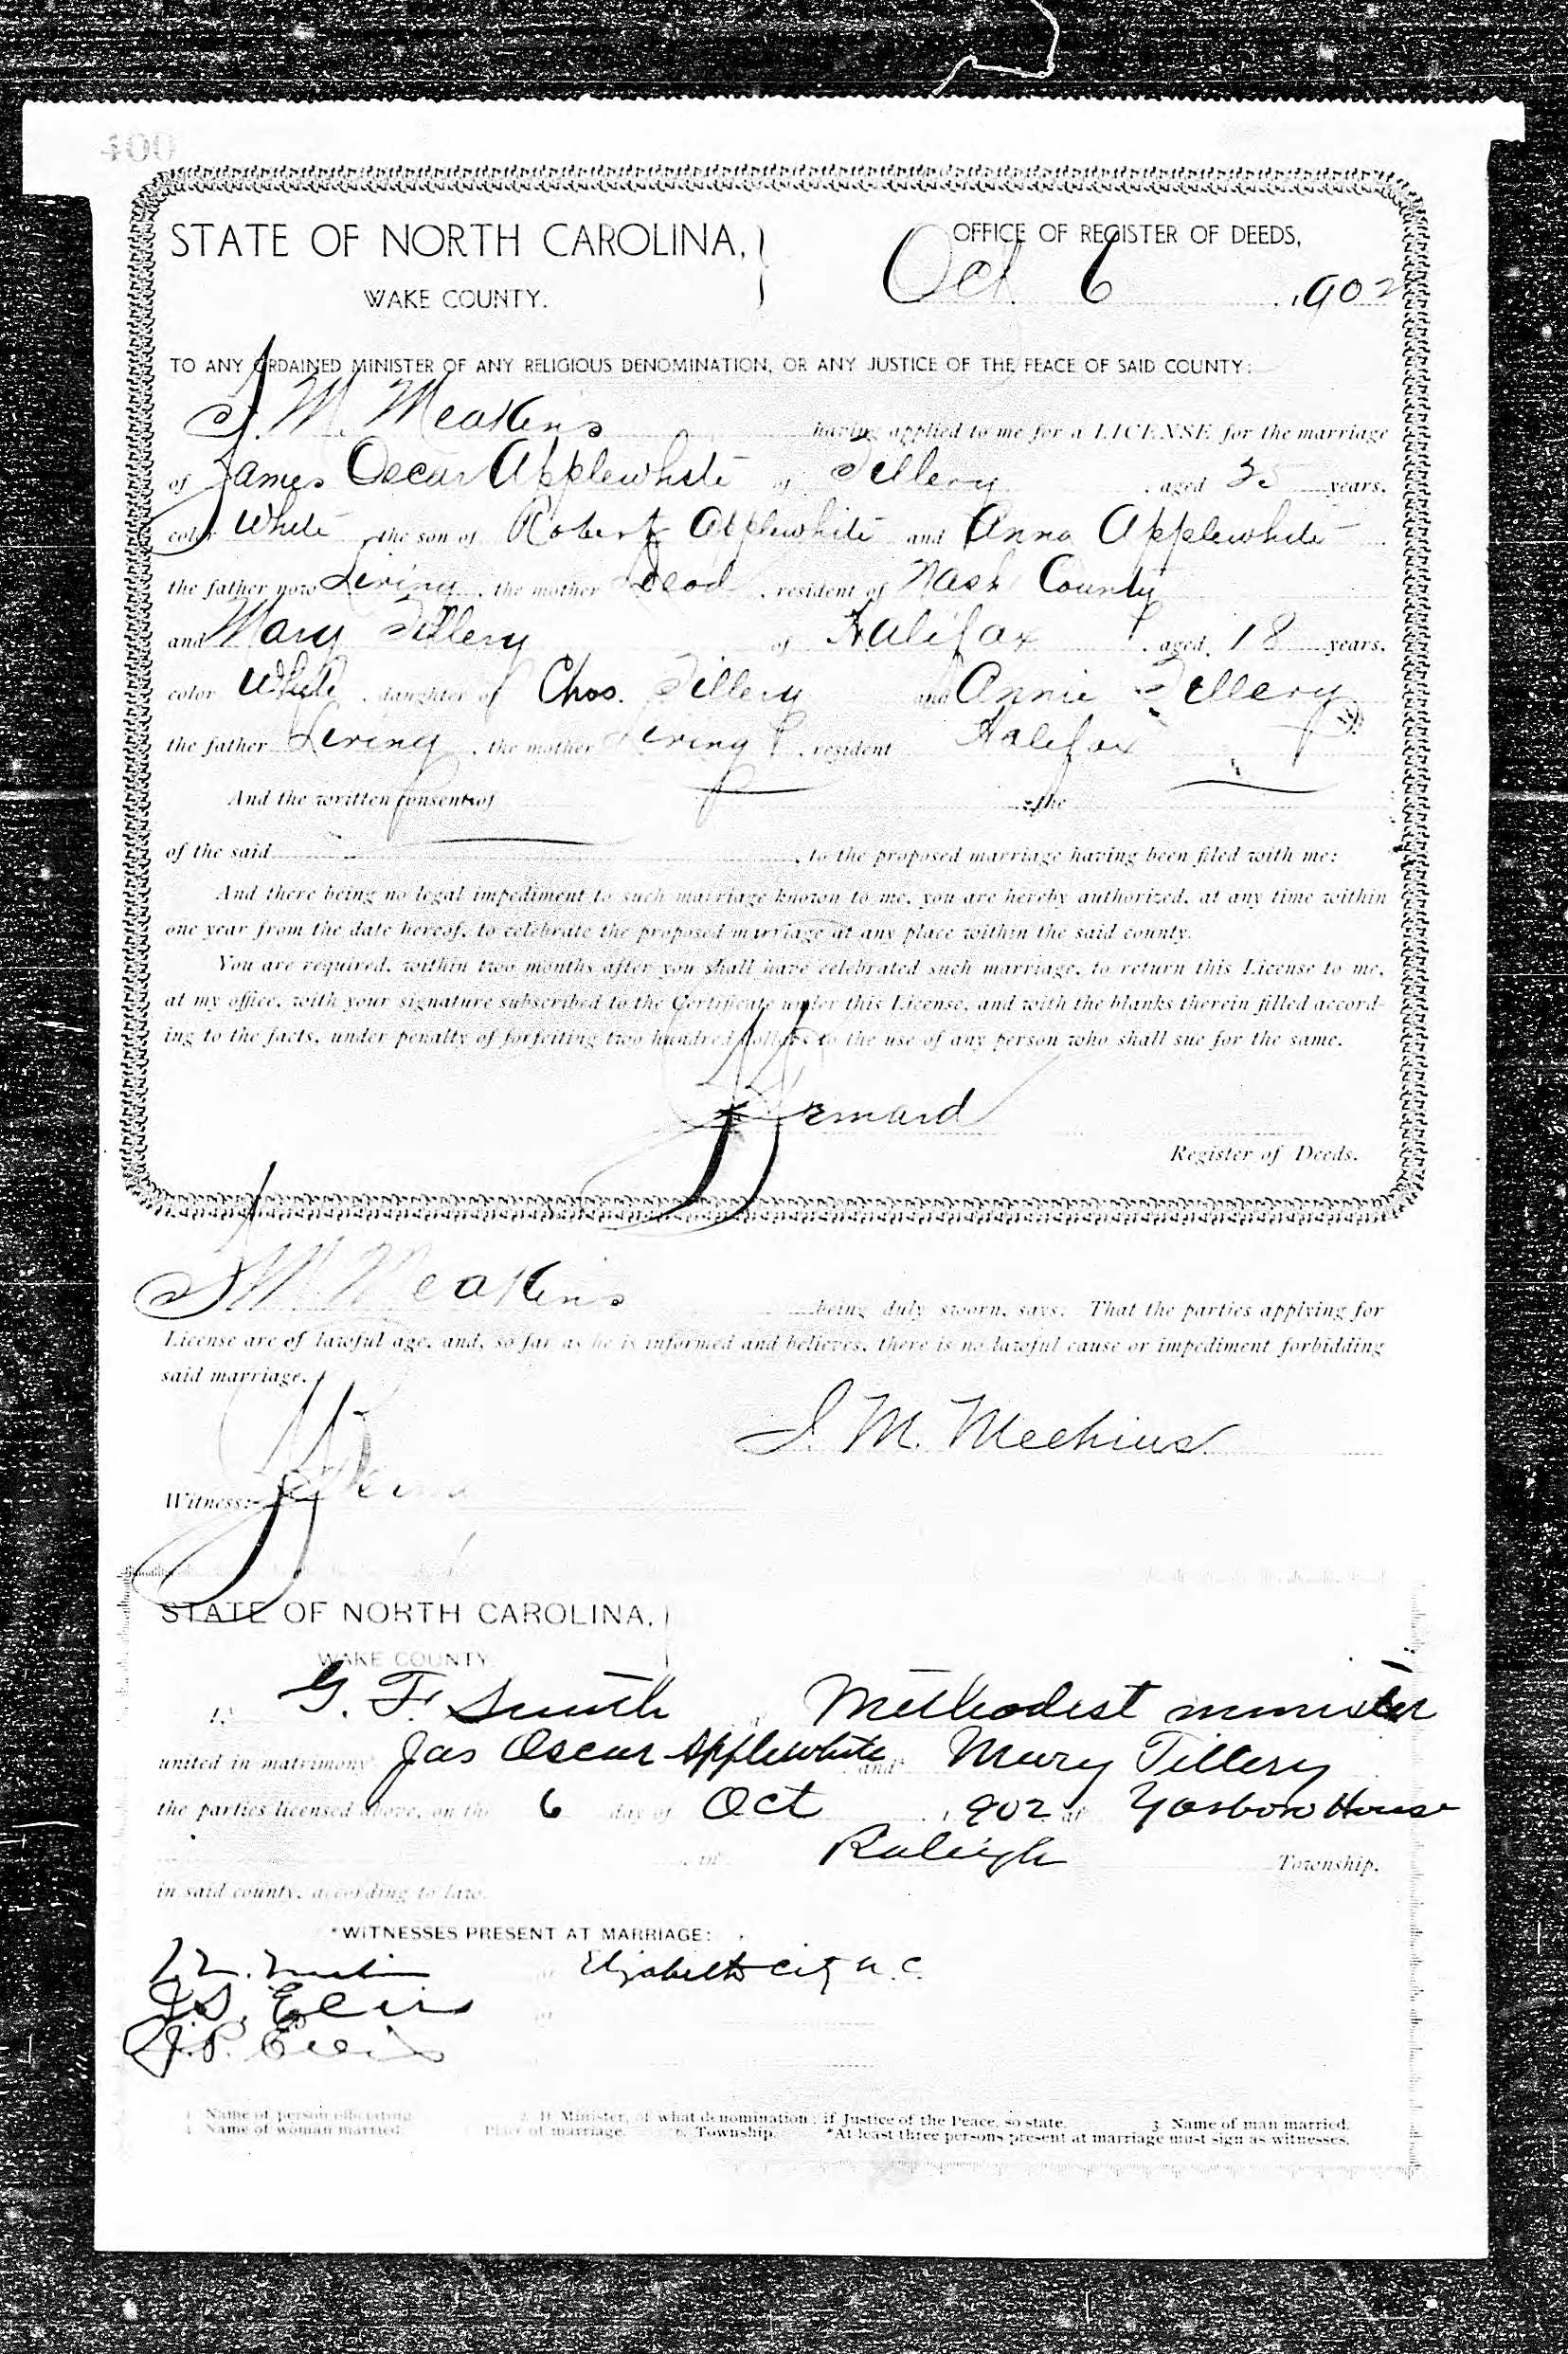 400
STATE OF NORTH CAROLINA, OFFICE OF REGISTER OF DEEDS,
WAKE COUNTY. Oct 6 1902
TO ANY ORDAINED MINISTER OF ANY RELIGIOUS DENOMINATION, OR ANY JUSTICE OF THE PEACE OF SAID COUNTY:
I. M. Meakins having applied to me for a LICENSE for the marriage
of James Oscar Applewhite of Tillery, aged 25 years,
color White, the son of Robert Applewhite and Anna Applewhite
the father now Living, the mother Dead, resident of Nash County
and Mary Tillery of Halifax, aged 18 years,
color White, daughter of Chas. Tillery and Annie Tillery
the father Living, the mother Living, resident Halifax
And the written consent of the
of the said, to the proposed marriage having been filed with me:
And there being no legal impediment to such marriage known to me, you are hereby authorized, at any time within
one year from the date hereof, to celebrate the proposed marriage at any place within the said county.
You are required, within two months after you shall have celebrated such marriage, to return this License to me,
at my office, with your signature subscribed to the Certificate under this License, and with the blanks therein filled accord-
ing to the facts, under penalty of forfeiting two hundred dollars to the use of any person who shall sue for the same.
Register of Deeds.
I M Meakins being duly sworn, says: That the parties applying for
License are of lawful age, and, so far as he is informed and believes, there is no lawful cause or impediment forbidding
said marriage.
I. M. Meekins
Witness:
STATE OF NORTH CAROLINA,
WAKE COUNTY.
I, G. F. Smith a Methodist minister
united in matrimony Jas Oscar Applewhite and Mary Tillery
the parties licensed above, on the 6 day of Oct, 1902 at Yarboro House
, in Raleigh Township,
in said county, according to law.
*WITNESSES PRESENT AT MARRIAGE:
of Elizabeth City N. C.
J. S. Ellis of
J. P. Ellis
1. Name of person officiating. 2. If Minister, of what denomination; if Justice of the Peace, so state. 3. Name of man married.
4. Name of woman married. Place of marriage. 6. Township. *At least three persons present at marriage must sign as witnesses.